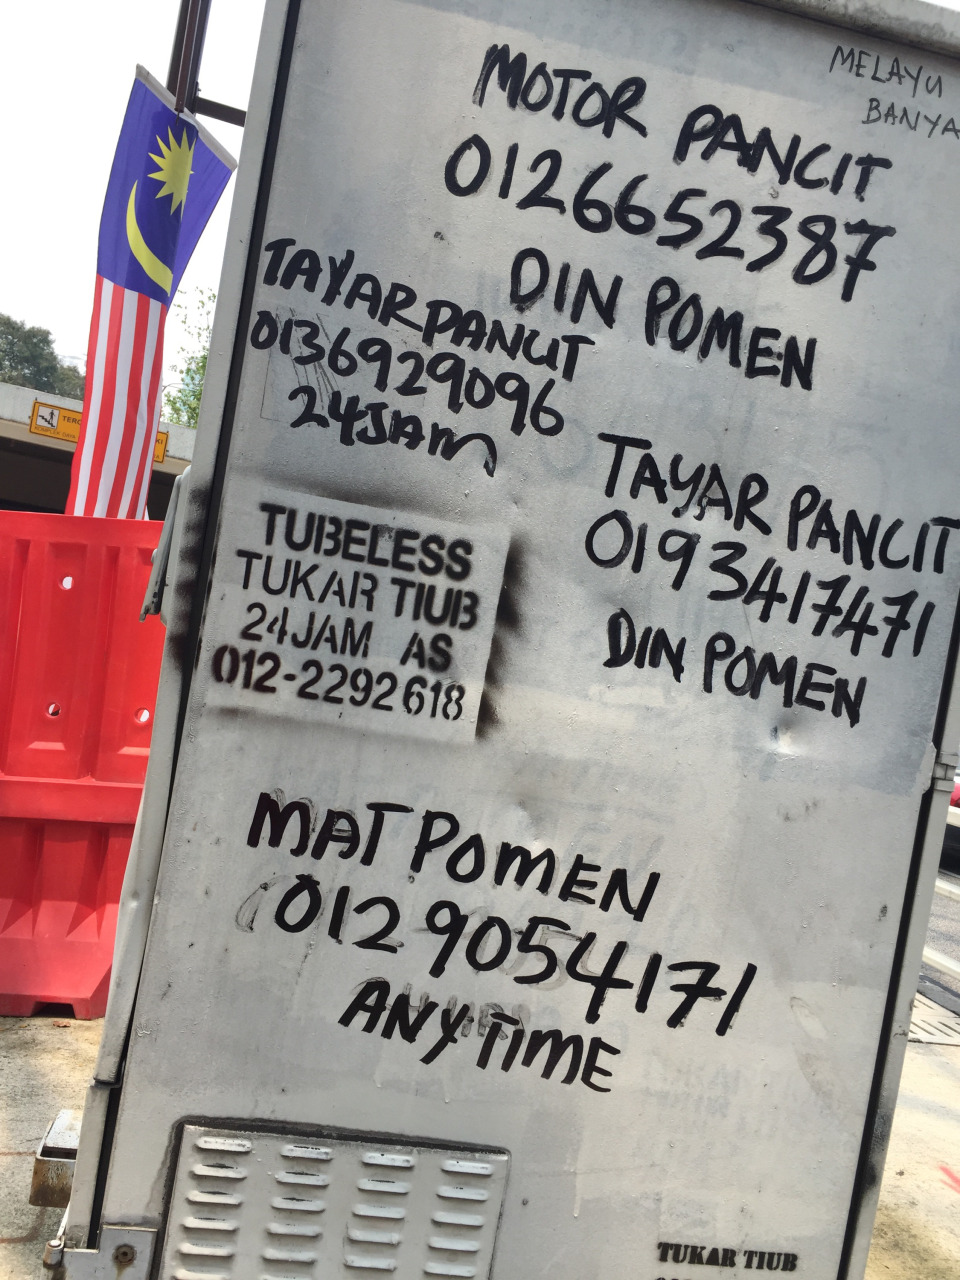 MELAYU
BANYA
MOTOR PANCIT
0126652387
DIN POMEN
TAYAR PANCIT
0136929096
24JAM
TAYAR PANCIT
0193417471
DIN POMEN
TUBELESS
TUKAR TIUB
24JAM AS
012-2292618
MAT POMEN
0129054171
ANYTIME
TUKAR TIUB